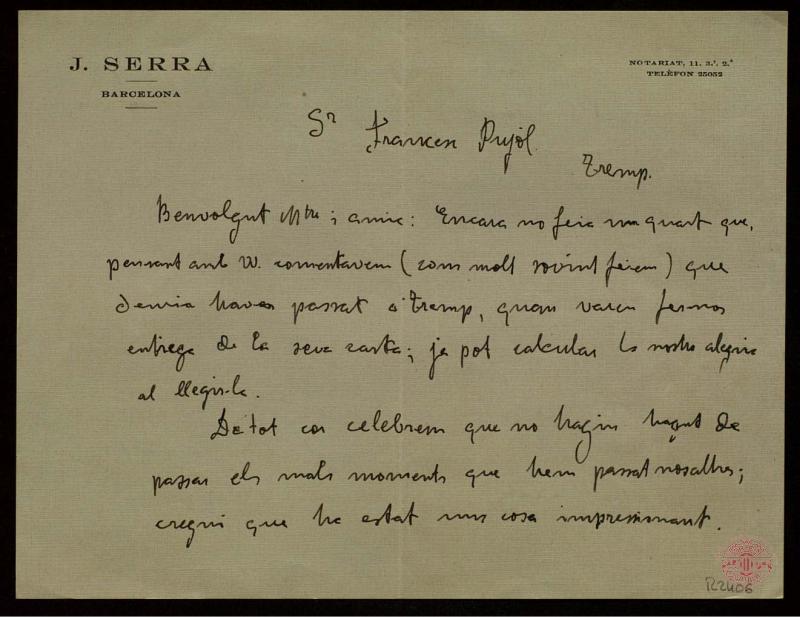 J. SERRA
BARCELONA
NOTARIAT, 11. 3.º, 2.ª
TELÈFON 25052
Sr Francesc Pujòl.
Tremp.
Benvolgut Mtre i amic: Encara no feia un quart que,
pensant amb V. comentavem (com molt sovint feiem) que
devia haver passat a Tremp, quan varen fernos
entrega de la seva carta; ja pot calcular la nostra alegria
al llegir-la.
De tot cor celebrem que no hagin hagut de
passar els mals moments que hem passat nosaltres;
cregui que ha estat una cosa impressionant.
R2406